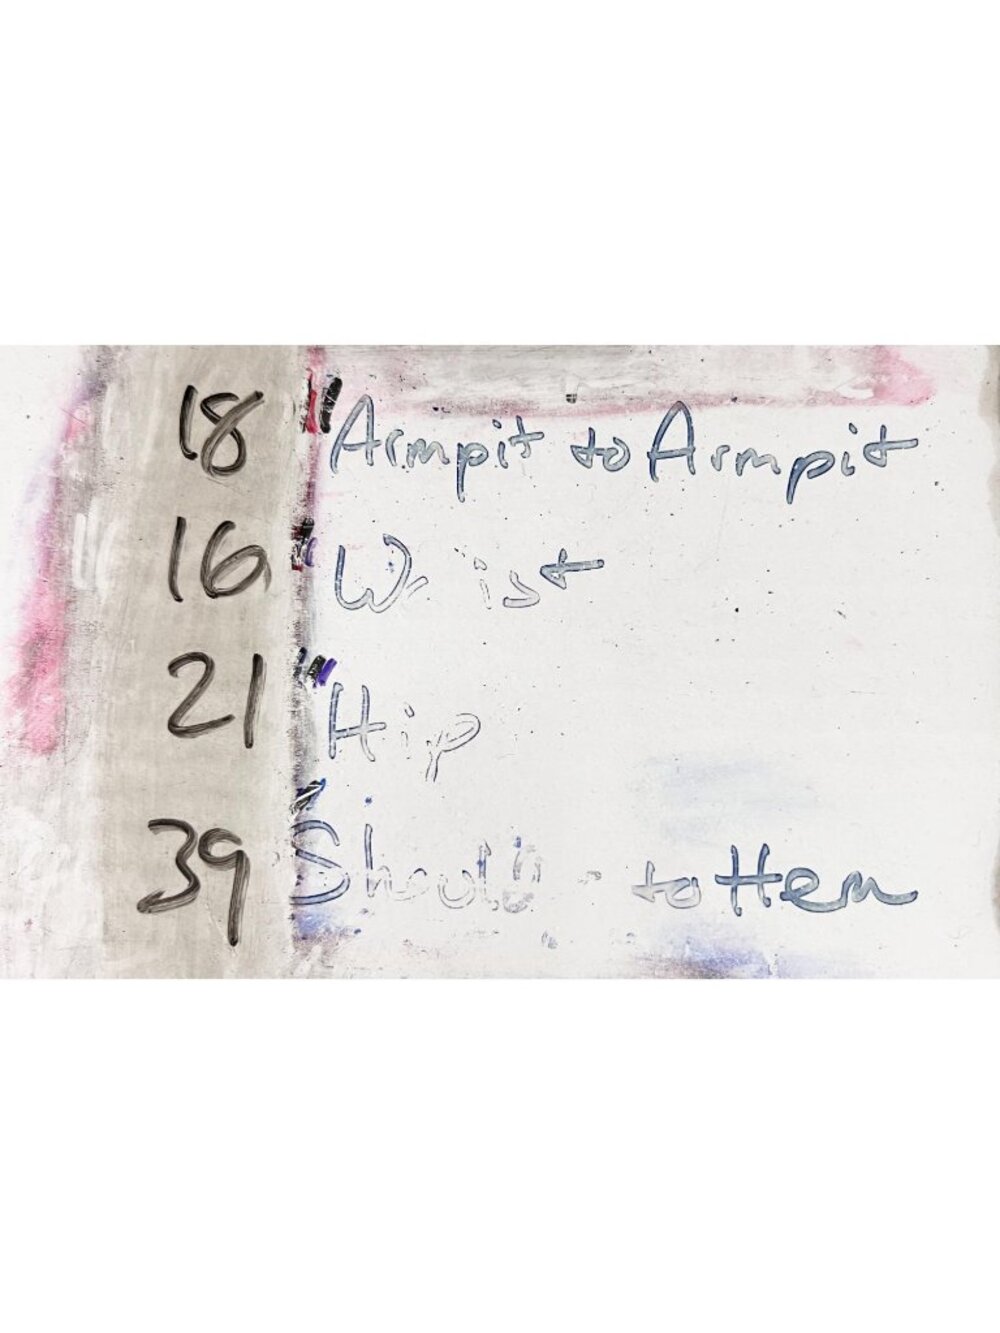 18" Armpit to Armpit
16" Waist
21" Hip
39" Should to Hem